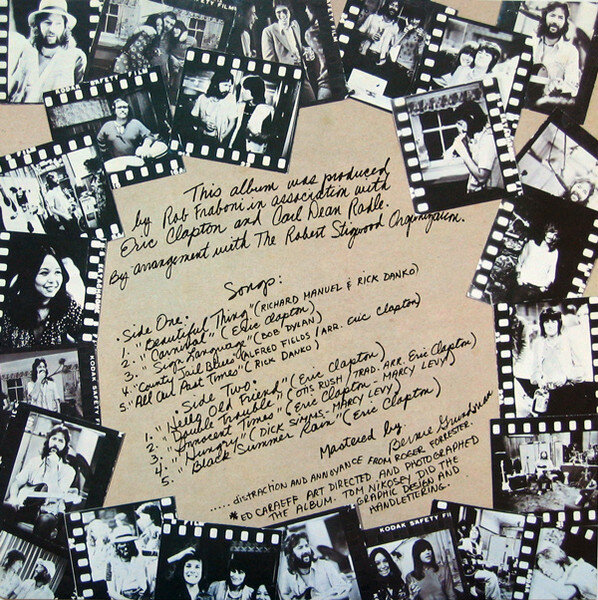 KODAK SAFETY FILM
This album was produced
by Rob Fraboni in association with
Eric Clapton and Carl Dean Radle.
By arrangement with The Robert Stigwood Organization.
Songs:
.Side One.
1. "Beautiful Thing" (RICHARD MANUEL & RICK DANKO)
2. "Carnival" (Eric Clapton)
3. "Sign Language" (BOB DYLAN)
4. "County Jail Blues" (ALFRED FIELDS / ARR. Eric Clapton)
5. "All Our Past Times" (RICK DANKO)
.Side Two.
1. "Hello Old Friend" (Eric Clapton)
2. "Double Trouble" (OTIS RUSH / TRAD. ARR. Eric Clapton)
3. "Innocent Times" (Eric Clapton - MARCY LEVY)
4. "Hungry" (DICK SIMMS - MARCY LEVY)
5. "Black Summer Rain" (Eric Clapton)
Mastered by
Bernie Grundman
..... DISTRACTION AND ANNOYANCE FROM ROGER FORRESTER.
*ED CARAEFF ART DIRECTED AND PHOTOGRAPHED
THE ALBUM. TOM NIKOSEY DID THE
GRAPHIC DESIGN AND
HANDLETTERING.
KODAK SAFETY
KODAK SAFETY FI